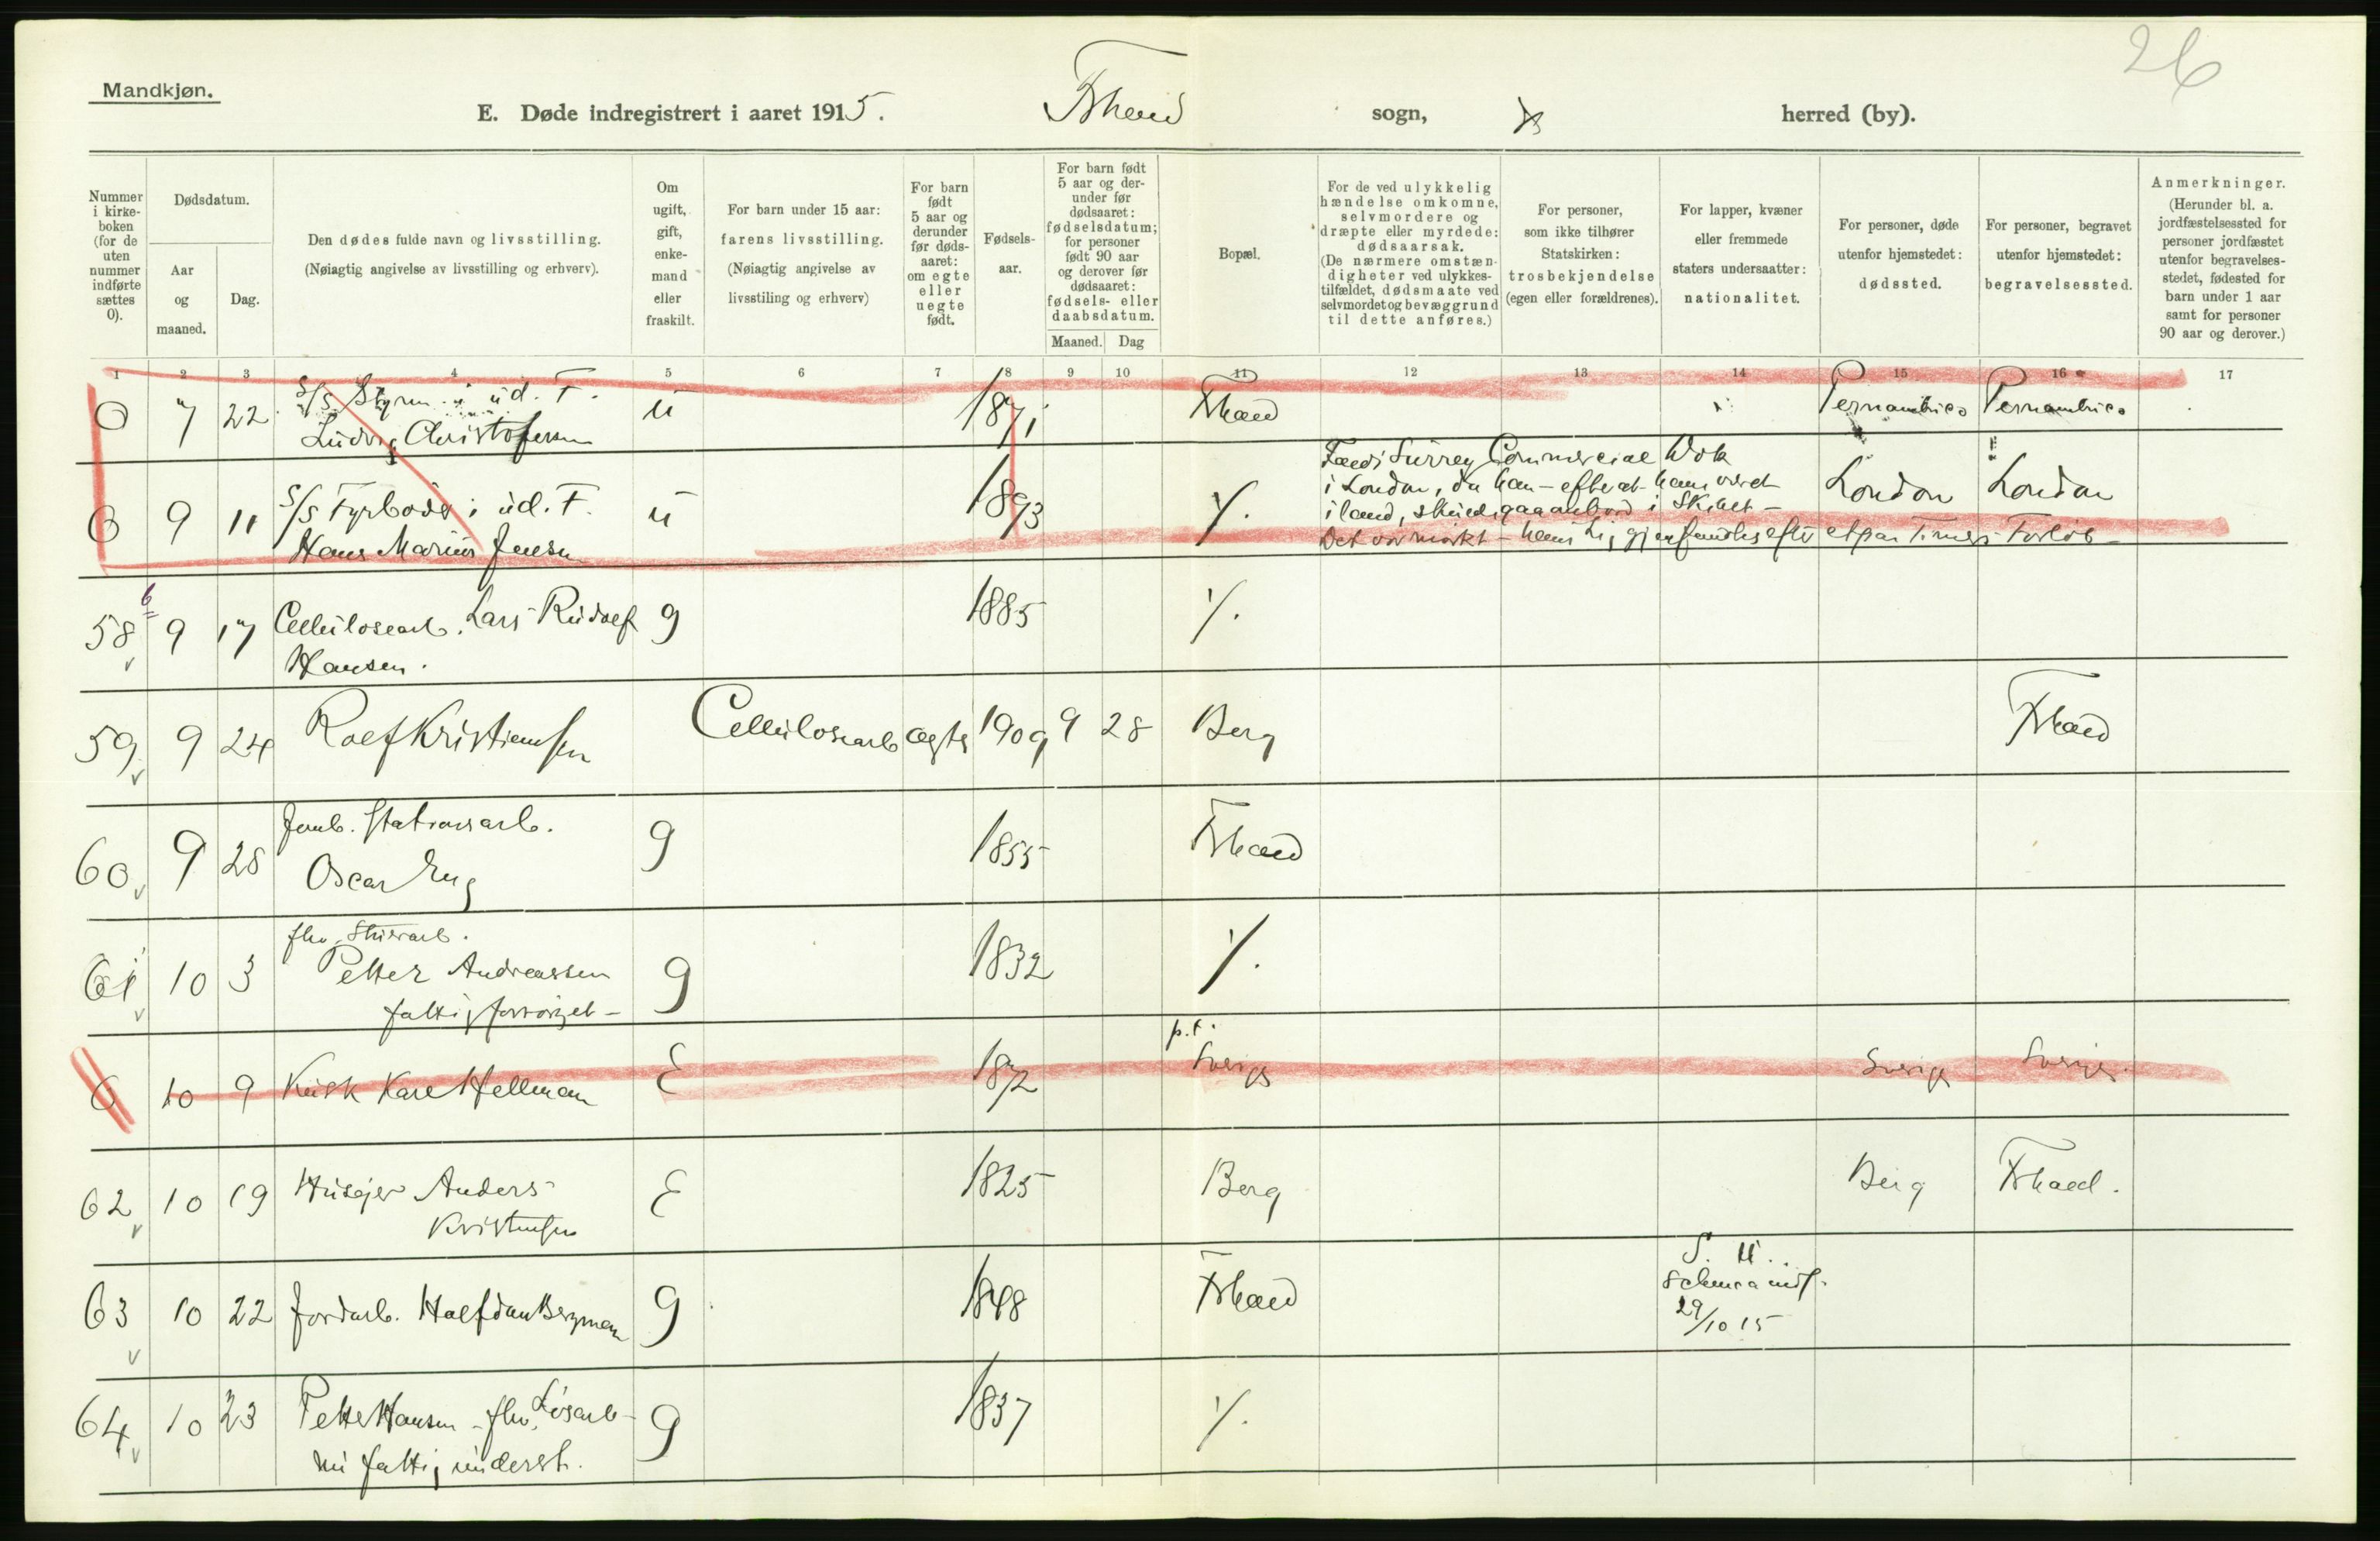 26
Mandkjøn.
E. Døde indregistrert i aaret 1915. Frhald sogn, herred (by).
Nummer i kirkeboken (for de uten nummer indførte sættes 0).
Dødsdatum.
Aar og maaned.
Dag.
Den dødes fulde navn og livsstilling.
(Nøiagtig angivelse av livsstilling og erhverv).
Om ugift, gift, enkemand eller fraskilt.
For barn under 15 aar: farens livsstilling.
(Nøiagtig angivelse av livsstiling og erhverv)
For barn født 5 aar og derunder før dødsaaret: om egte eller uegte født.
Fødselsaar.
For barn født 5 aar og derunder før dødsaaret: fødselsdatum; for personer født 90 aar og derover før dødsaaret: fødsels- eller daabsdatum.
Maaned. Dag
Bopæl.
For de ved ulykkelig hændelse omkomne, selvmordere og dræpte eller myrdede: dødsaarsak.
(De nærmere omstændigheter ved ulykkestilfældet, dødsmaate ved selvmordet og bevæggrund til dette anføres.)
For personer, som ikke tilhører Statskirken: trosbekjendelse (egen eller forældrenes).
For lapper, kvæner eller fremmede staters undersaatter: nationalitet.
For personer, døde utenfor hjemstedet: dødssted.
For personer, begravet utenfor hjemstedet: begravelsessted.
Anmerkninger.
(Herunder bl. a. jordfæstelsessted for personer jordfæstet utenfor begravelsesstedet, fødested for barn under 1 aar samt for personer 90 aar og derover.)
1 2 3 4 5 6 7 8 9 10 11 12 13 14 15 16 17
0 7 22 S/S Styrm. i ud. F. u 1871 Frhald Pernambuco Pernambuco
Ludvig Christofersen
0 9 11 S/S Fyrbøder i ud. F. u 1893 ٪. Surrey Commercial Dok London London
Hans Marius Jensen
i London, da han – efterat have været
i land, skulde gaa ombord i Skibet –
Det var mørkt – hans Lig gjenfandtes efter et par Timers Forløb –
58 9 17 Cellulosearb. Lars Rudolf g 1885 ٪.
Hansen.
59 9 24 Rolf Kristiansen Cellulosearb ægte 1909 9 28 Berg Frhald
60 9 28 Jernb. Stationsarb. g 1855 Frhald
Oscar
61 10 3 fhv. g 1832 ٪.
Petter Andreassen
fattigforsørget –
0 10 9 Kusk Karl Hellman E 1872 p.t. Sverige Sverige Sverige
62 10 19 Huseier Anders E 1825 Berg Berg Frhald.
Kristensen
63 10 22 Jordarb. Halfdan Bergman g 1848 Frhald
29/10 15
64 10 23 Petter Hansen – fhv. Løsarb – g 1837 ٪.
nu fattigunderst.